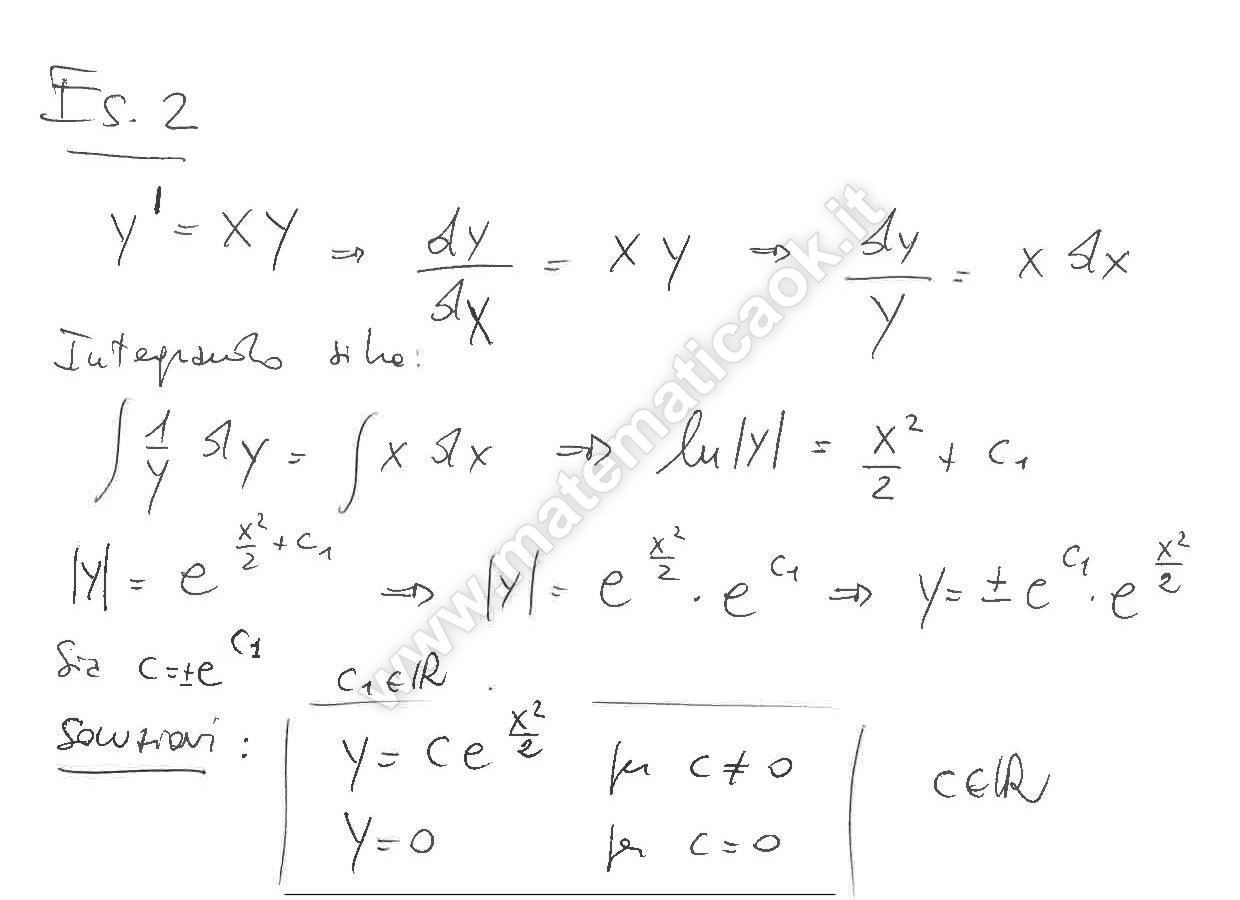 Es. 2
y' = xy ⇒ dy/dx = xy ⇒ dy/y = x dx
Integrando si ha:
∫ 1/y dy = ∫ x dx ⇒ ln|y| = x²/2 + c₁
|y| = e^(x²/2 + c₁) ⇒ |y| = e^(x²/2) · e^(c₁) ⇒ y = ± e^(c₁) · e^(x²/2)
Sia c = ±e^(c₁) c₁ ∈ ℝ.
Soluzioni: y = c e^(x²/2) per c ≠ 0 c ∈ ℝ
y = 0 per c = 0
www.matematicaok.it